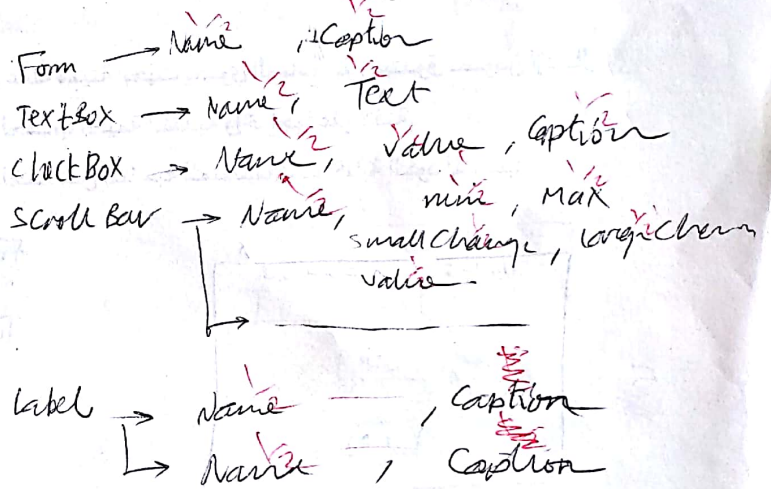 Form → Name , Caption
TextBox → Name, Text
CheckBox → Name, Value, Caption
Scroll Bar → Name, min, Max
small Change, large Chan
value
Label → Name , Caption
→ Name , Caption